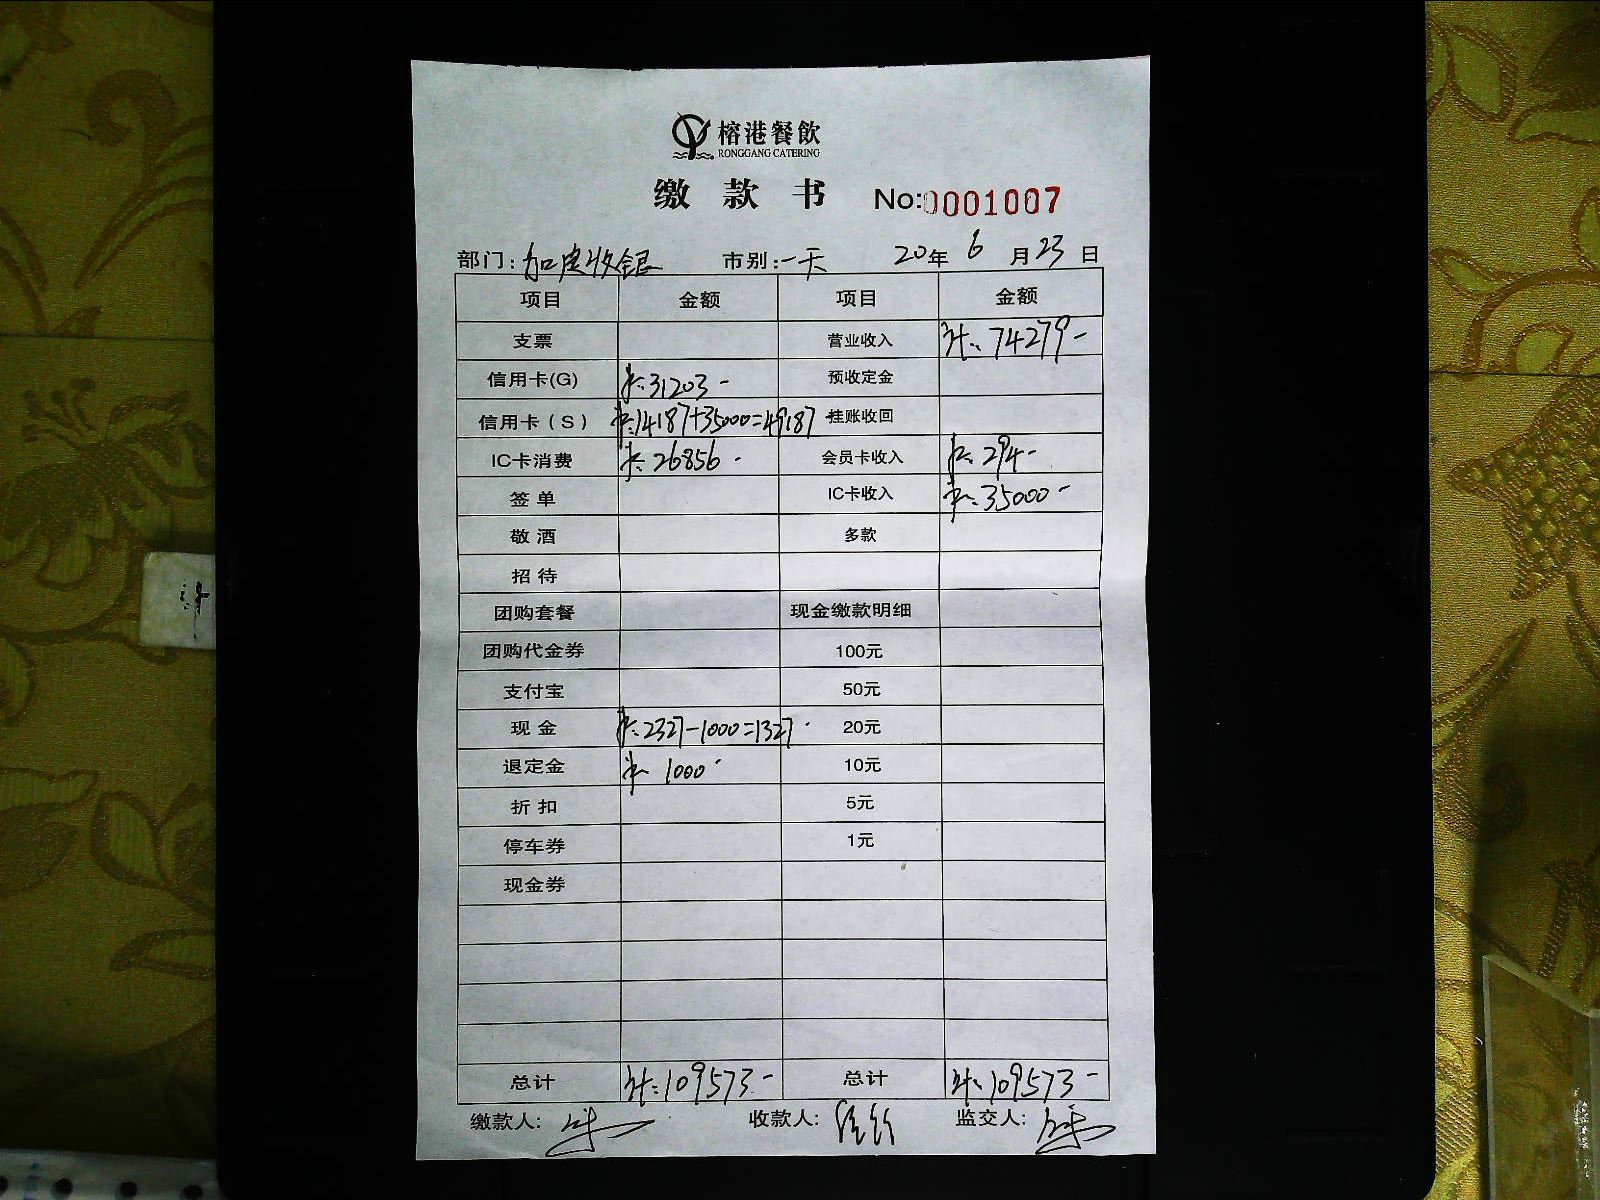 榕港餐飲
RONGGANG CATERING
缴款书 No:0001007
部门: 收银 市别:一天 20年6月23日
项目 金额 项目 金额
支票 营业收入 计:74279-
信用卡(G) 卡:31203- 预收定金
信用卡(S) 卡:14187+35000=49187 挂账收回
IC卡消费 卡:26856- 会员卡收入 卡:294-
签单 IC卡收入 卡:35000-
敬酒 多款
招待
团购套餐 现金缴款明细
团购代金券 100元
支付宝 50元
现金 2327-1000=1327 20元
退定金 1000 10元
折扣 5元
停车券 1元
现金券
总计 计:109573- 总计 计:109573-
缴款人: 收款人: 监交人: